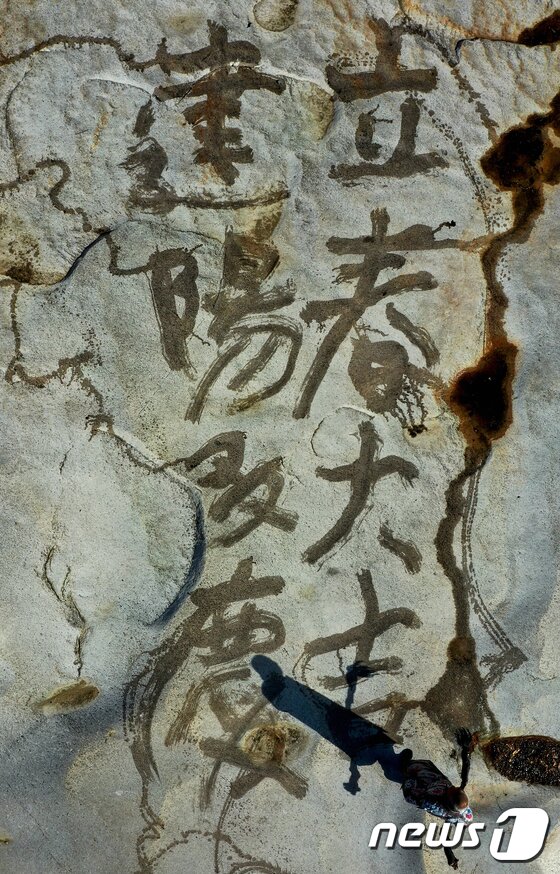 立春大吉
建陽多慶
news1